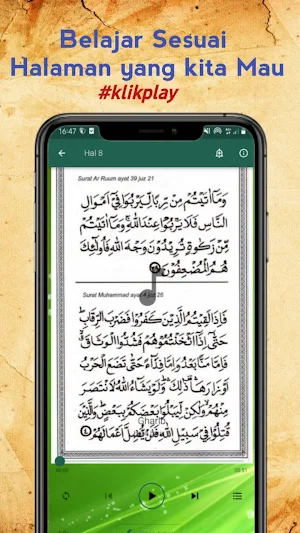 Belajar Sesuai
Halaman yang kita Mau
#klikplay
16:47
Hal 8
Surat Ar Ruum ayat 39 juz 21
وَمَآ اٰتَيْتُمْ مِّنْ رِّبًا لِّيَرْبُوَا۟ فِيْٓ اَمْوَالِ
النَّاسِ فَلَا يَرْبُوْا عِنْدَ اللّٰهِ ۚ وَمَآ اٰتَيْتُمْ
مِّنْ زَكٰوةٍ تُرِيْدُوْنَ وَجْهَ اللّٰهِ فَاُولٰۤىِٕكَ
هُمُ الْمُضْعِفُوْنَ
Surat Muhammad ayat 4 juz 26
فَاِذَا لَقِيْتُمُ الَّذِيْنَ كَفَرُوْا فَضَرْبَ الرِّقَابِۗ
حَتّٰٓى اِذَآ اَثْخَنْتُمُوْهُمْ فَشُدُّوا الْوَثَاقَۖ
فَاِمَّا مَنًّاۢ بَعْدُ وَاِمَّا فِدَاۤءً حَتّٰى تَضَعَ الْحَرْبُ
اَوْزَارَهَا ۛ ذٰلِكَ ۛ وَلَوْ يَشَاۤءُ اللّٰهُ لَانْتَصَرَ
مِنْهُمْ وَلٰكِنْ لِّيَبْلُوَا۟ بَعْضَكُمْ بِبَعْضٍۗ وَالَّذِيْنَ
قُتِلُوْا فِيْ سَبِيْلِ اللّٰهِ فَلَنْ يُّضِلَّ اَعْمَالَهُمْ
Gharib